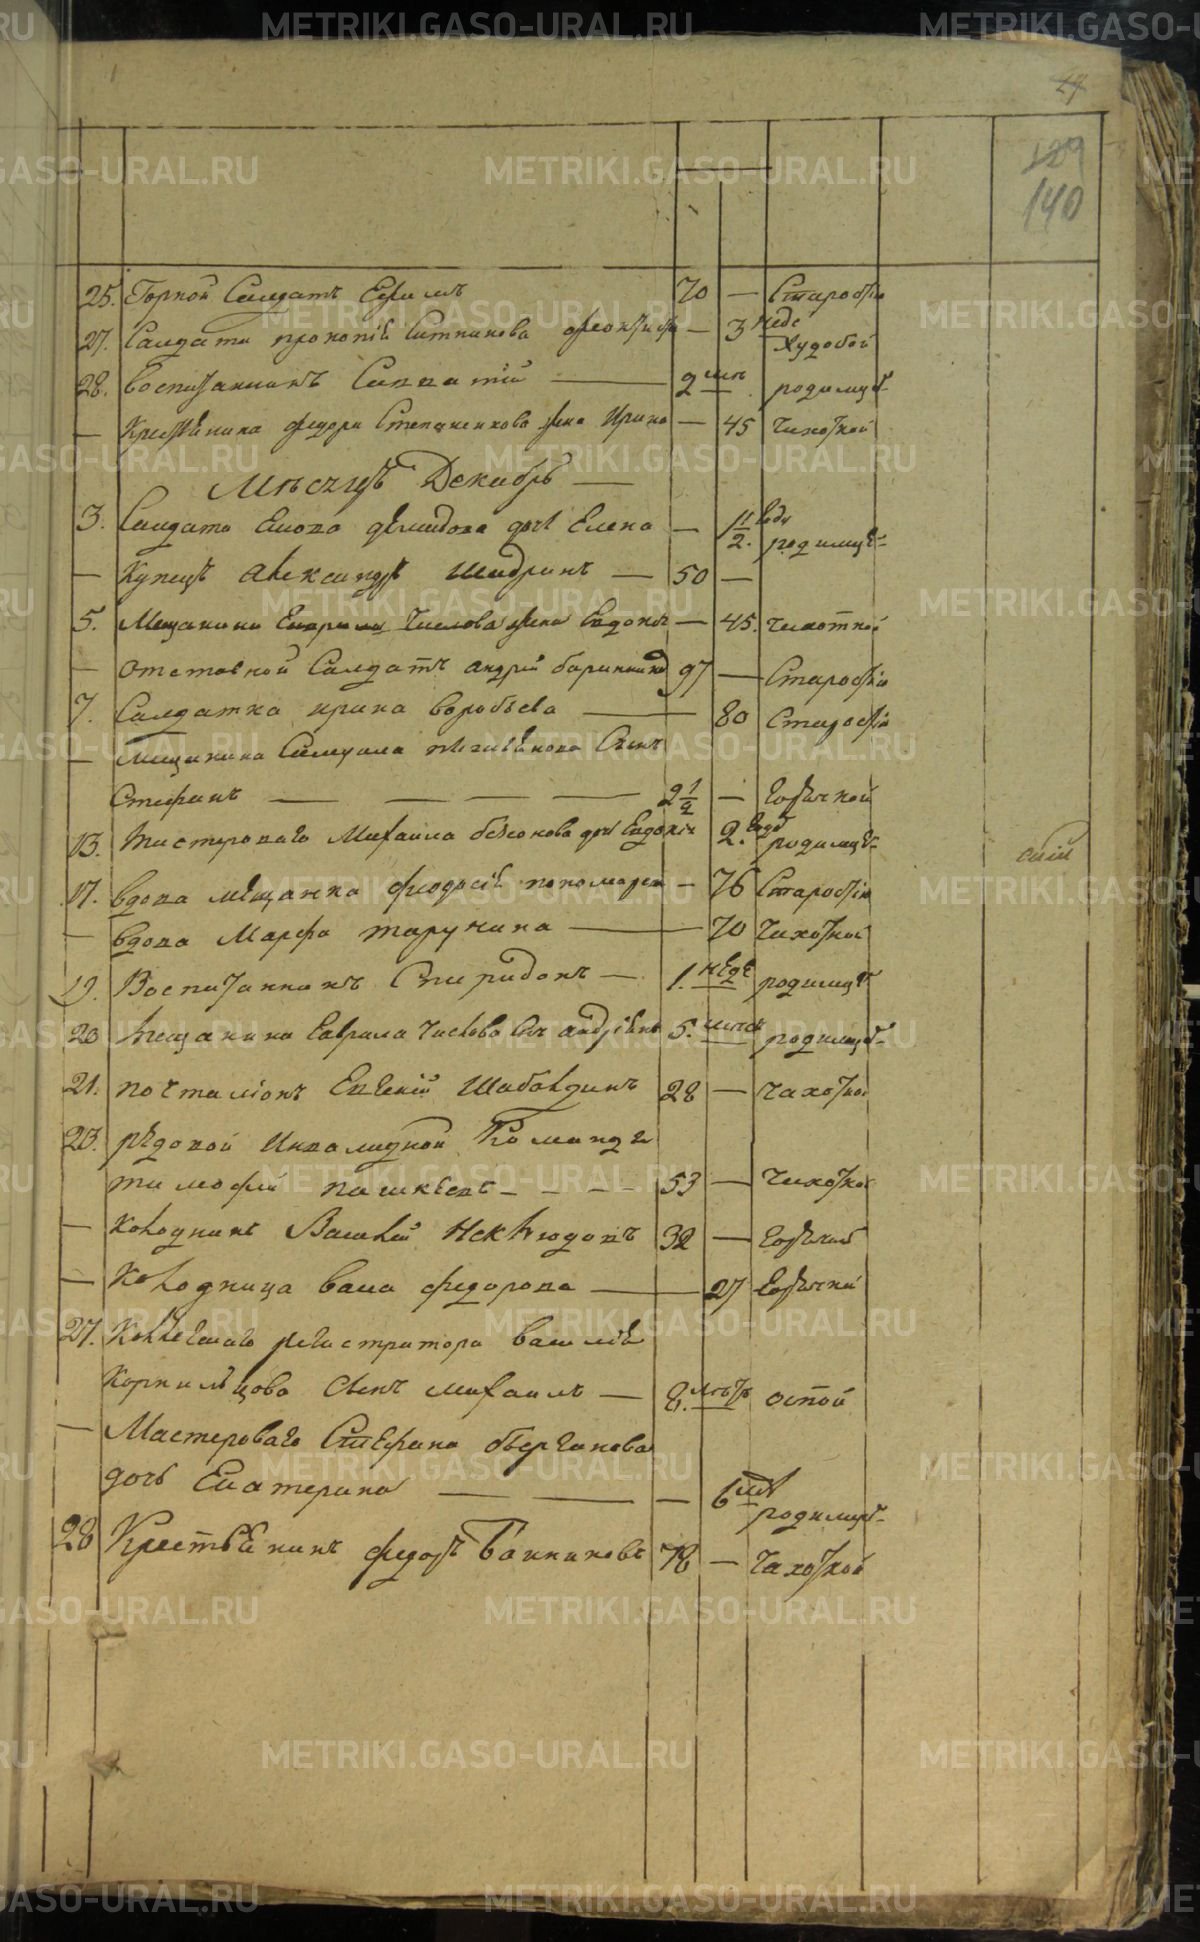 METRIKI.GASO-URAL.RU
24
129
140
25. Горной Салдатъ Ефимъ 70 — Старостію
27. Салдата Прокопія Ситникова — 3 неде Худобой
28. Воспитанникъ Савватій — 2 родимцѣ
— Крестьянина Федора Степаненкова жена Ирина — 45 Чахоткой
Мѣсяцъ Декабрь —
3. Салдата Демидова дочь Елена — 1 1/2. родимцѣ
— Купецъ Александръ Шадринъ — 50 —
5. Мещанина Гаврила Числова жена Евдокія — 45. Чахоткой
— Отставной Салдатъ Андрей 97 — Старостію
7. Салдатка Ирина Воробьева — 80 Старостію
— Мещанина Сынъ
Стефанъ — — — — 2 1/2 — Горячкой
13. Мастероваго Михаила дочь Евдокія 2. года родимцѣ
17. Вдова мѣщанка Феодосія Пономарев — 76 Старостію
— Вдова Марфа Тарунина — 70 Чахоткой
19. Воспитанникъ Спиридонъ — 1. неде родимцѣ
20 Мещанина Гаврила Числова Сынъ 5. родимцѣ
21. Почталіонъ Евгеній Шабалдинъ 28 — Чахоткой
23. Рядовой Инвалидной Команды
Тимофей Пашкевъ - - - - 53 — Чахоткой
— Колодникъ Василей Неклюдовъ 32 — Горячкой
— Колодница Васа Федорова — 27 Горячкой
27. Коллежскаго регистратора Василія
Корнильцова Сынъ Михаилъ — 8. оспой
— Мастероваго Стефана
дочь Екатерина — — — 6 родимцѣ
28 Крестьянинъ Федоръ Банниковъ 78 — Чахоткой